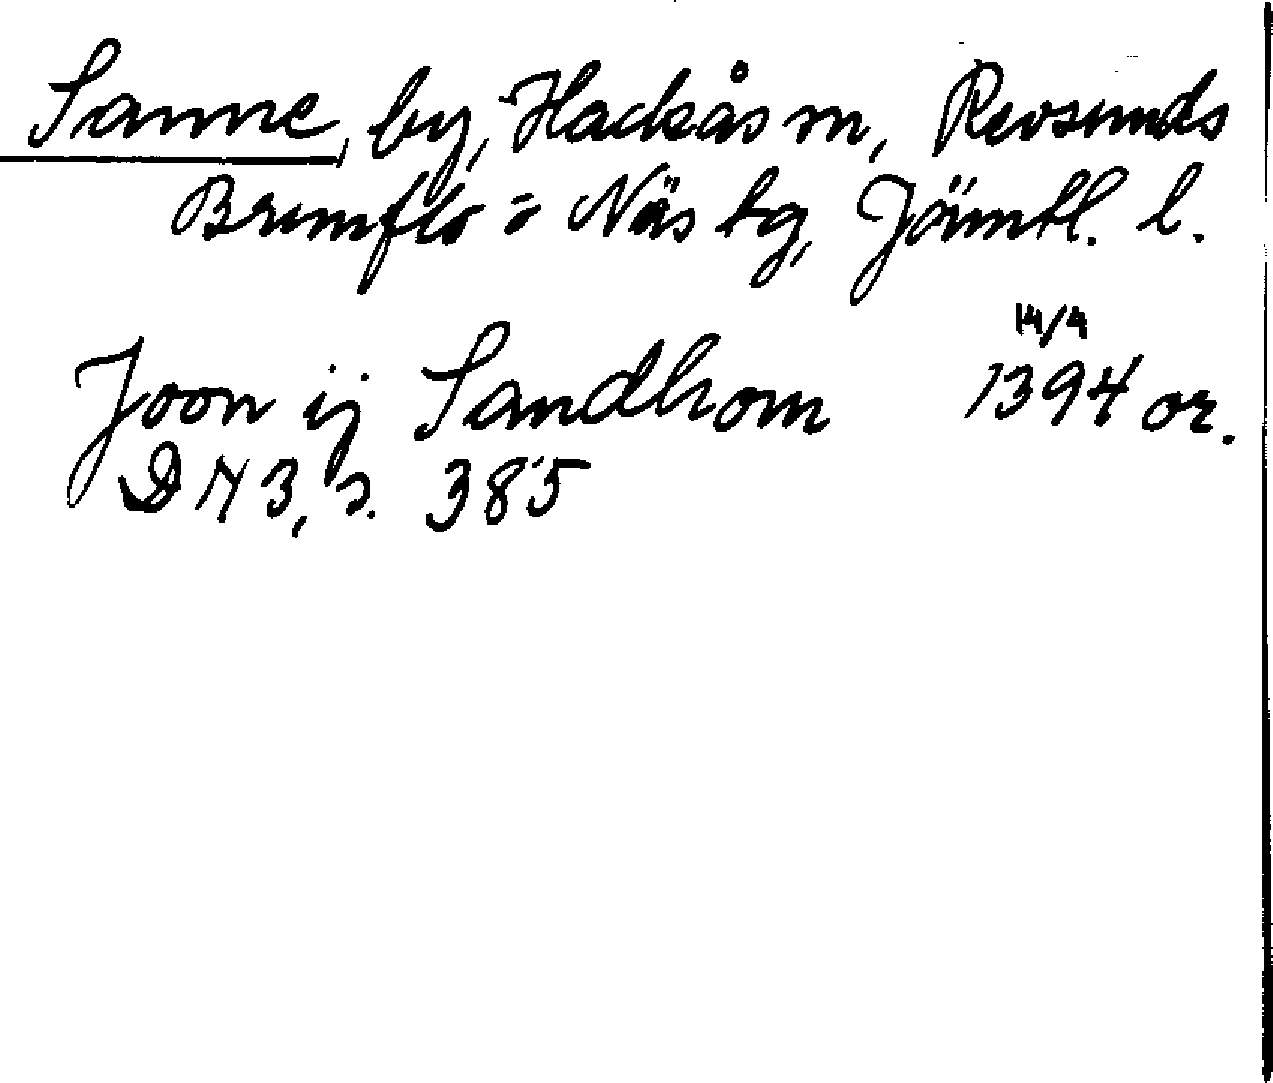 Sanne, by, Hackås sn, Revsunds
Brunflo o Näs tg, Jämtl. l.
14/4
Joon ij Sandhom 1394 or.
DN 3, s. 385